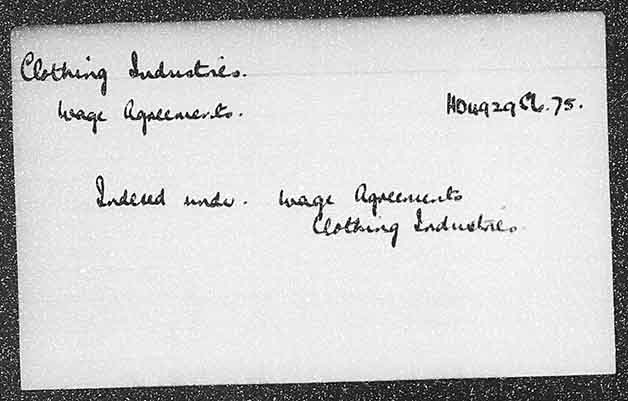 Clothing Industries.
Wage Agreements. HD4929 Cl. 75.
Indexed under. Wage Agreements
Clothing Industries.